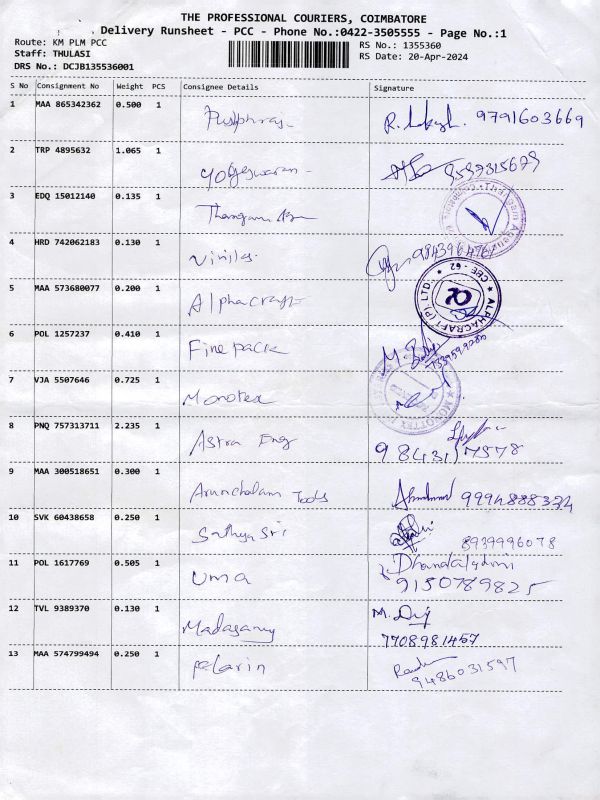 THE PROFESSIONAL COURIERS, COIMBATORE
Delivery Runsheet - PCC - Phone No.:0422-3505555 - Page No.:1
Route: KM PLM PCC
RS No.: 1355360
Staff: THULASI
RS Date: 20-Apr-2024
DRS No.: DCJB135536001
S No Consignment No Weight PCS Consignee Details Signature
1 MAA 865342362 0.500 1 9791603669
2 TRP 4895632 1.065 1 Yogeswaran
3 EDQ 15012140 0.135 1
4 HRD 742062183 0.130 1
5 MAA 573680077 0.200 1 Alphacraft
ALPHACRAFT (P) LTD. CBE - 62
6 POL 1257237 0.410 1 Fine pack
7 VJA 5507646 0.725 1 Monotex
8 PNQ 757313711 2.235 1 Astra Eng
9 MAA 300518651 0.300 1 Arunchalam Tools
10 SVK 60438658 0.250 1 Sathya Sri 8939996078
11 POL 1617769 0.505 1 Uma Dhandalakshmi
9150789825
12 TVL 9389370 0.130 1
7708981457
13 MAA 574799494 0.250 1
9486031597